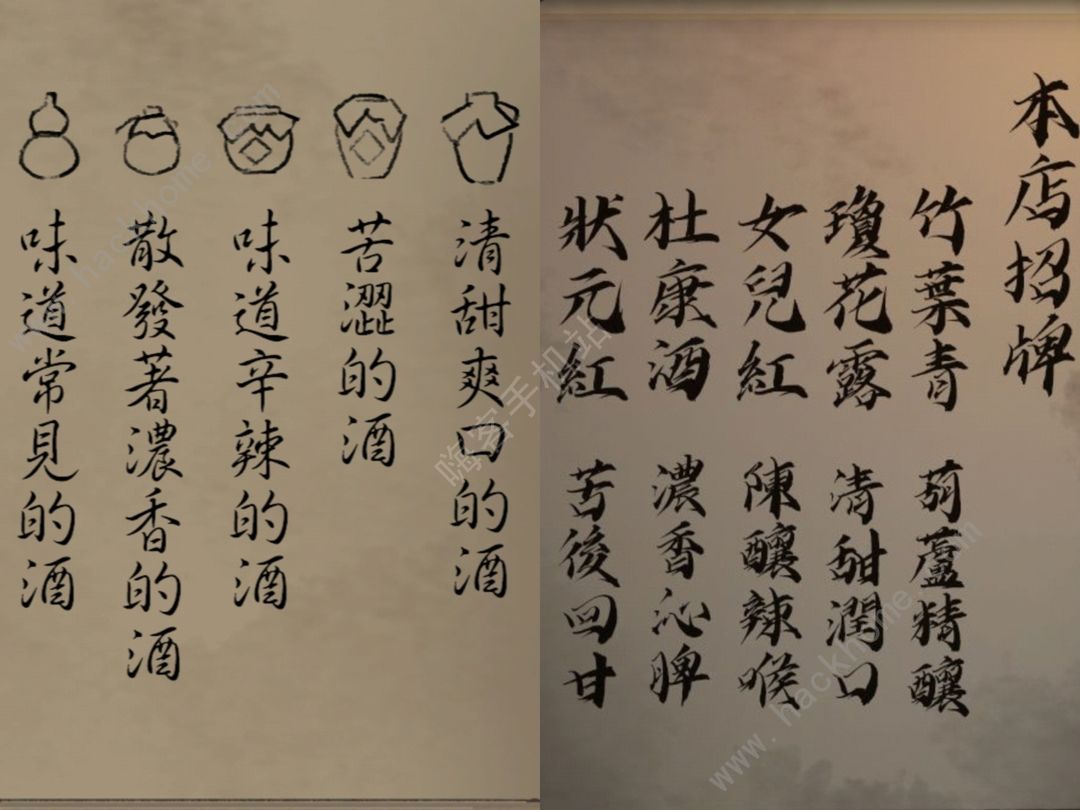 清甜爽口的酒
苦澀的酒
味道辛辣的酒
散發著濃香的酒
味道常見的酒
本店招牌
竹葉青 葫蘆精釀
瓊花露 清甜潤口
女兒紅 陳釀辣喉
杜康酒 濃香沁脾
狀元紅 苦後回甘
嗨客手机站
www.hackhome.com
www.hackhome.com